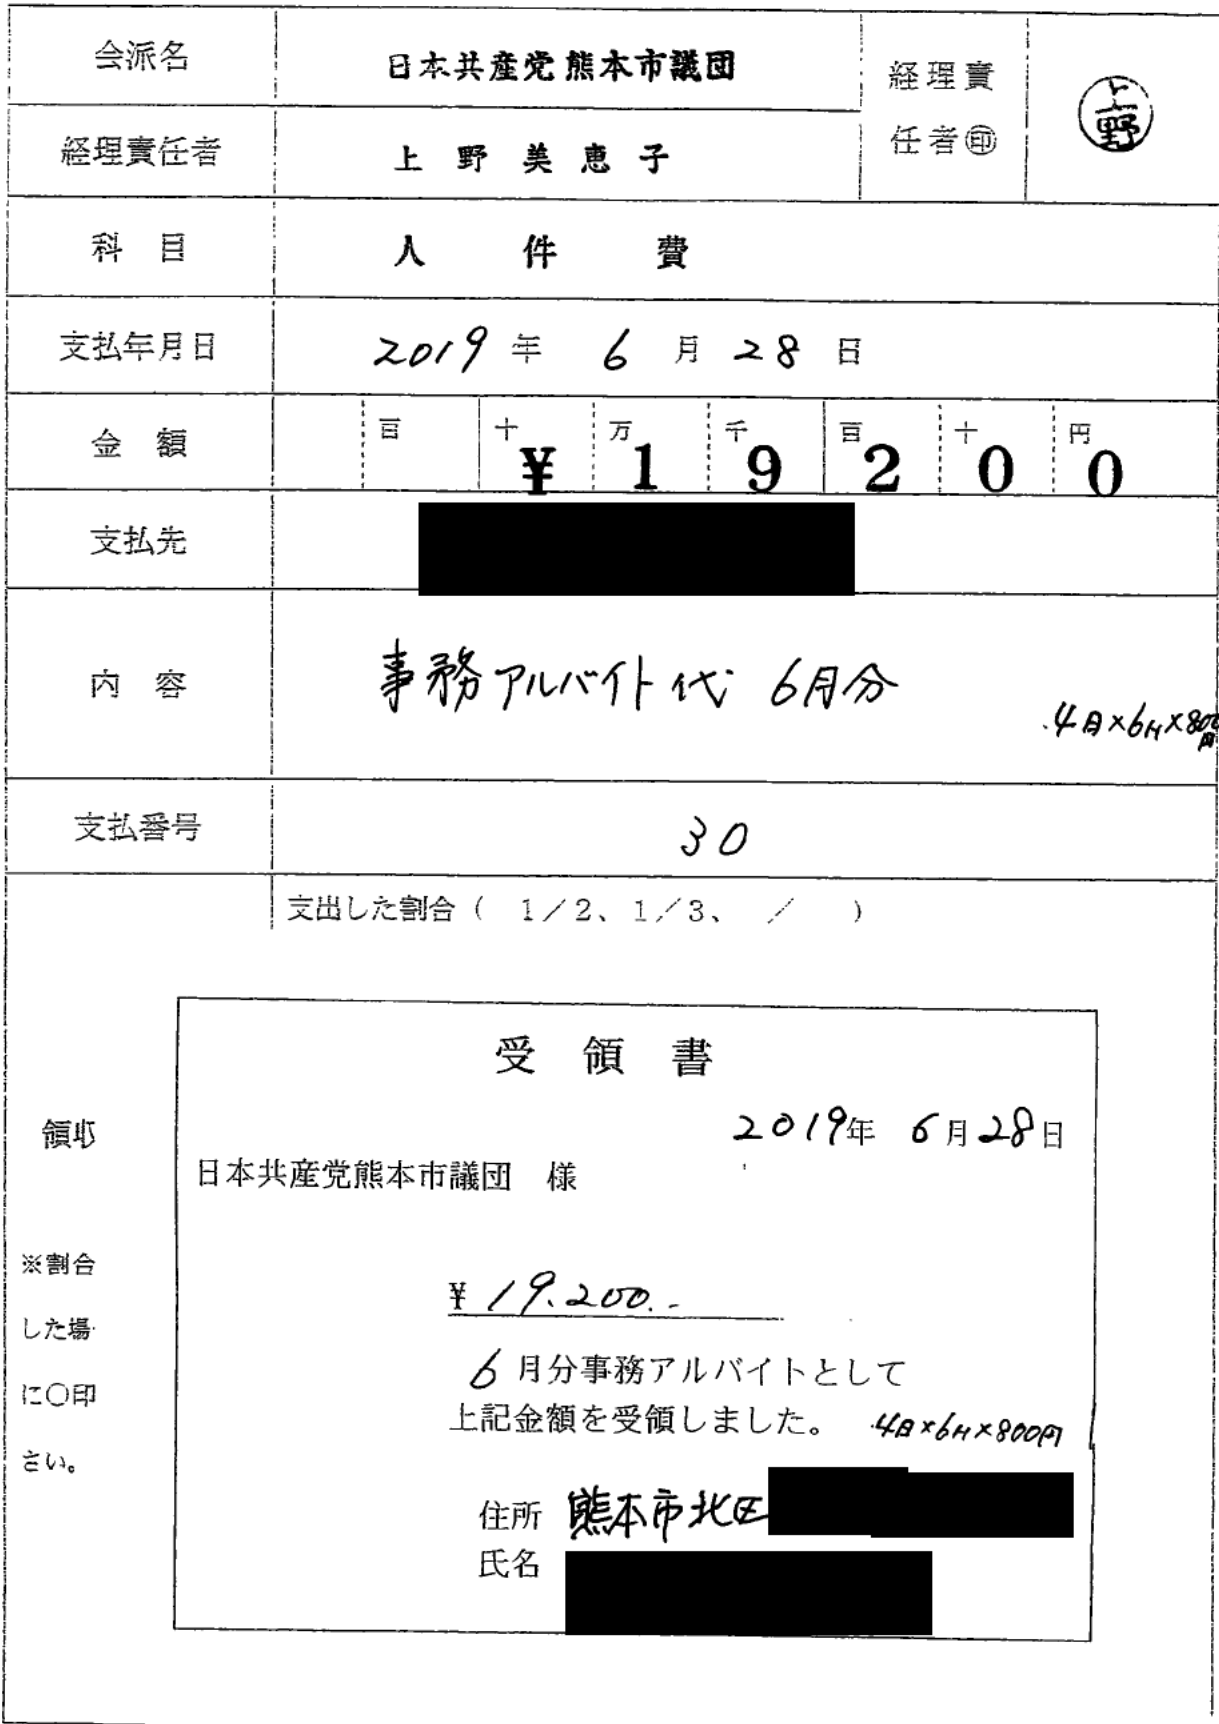 会派名 日本共産党熊本市議団 経理責任者㊞ 上野
経理責任者 上野美恵子
科目 人件費
支払年月日 2019年6月28日
金額 百 十 万 千 百 十 円 ¥19200
支払先
内容 事務アルバイト代 6月分
4日×6H×800円
支払番号 30
支出した割合( 1/2、1/3、 / )
受領書
領収
2019年 6月28日
日本共産党熊本市議団 様
※割合
した場
に〇印
さい。
¥19.200.-
6月分事務アルバイトとして
上記金額を受領しました。 4日×6H×800円
住所 熊本市北区
氏名